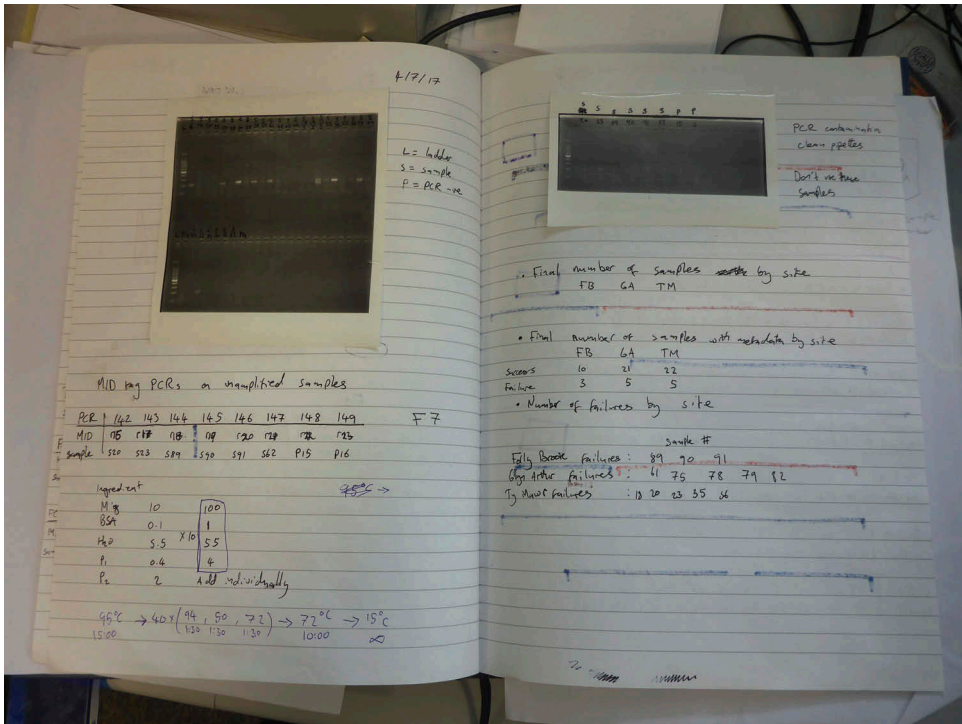 4/7/17
L = ladder
S = sample
P = PCR -ve
MID tag PCRs on unamplified samples
PCR 142 143 144 145 146 147 148 149
F7
MID
Sample S20 S23 S89 S90 S91 S62 P15 P16
Ingredient
Mix 10 100
BSA 0.1 1
H2O 5.5 x10 55
P1 0.4 4
P2 2 Add individually
95°C → 40 x (94, 50, 72) → 72°C → 15°C
15:00 1:30 1:30 1:30 10:00 ∞
S S S S S S P P
PCR contamination
clean pipettes
Don't use these
samples
Final number of samples by site
FB GA TM
• Final number of samples with metadata by site
FB GA TM
Success 10 21 22
Failure 3 5 5
• Number of failures by site
Sample #
Folly Brook failures: 89 90 91
Glyn Arthur failures: 61 75 78 79 82
Ty Mawr failures: 18 20 23 35 56